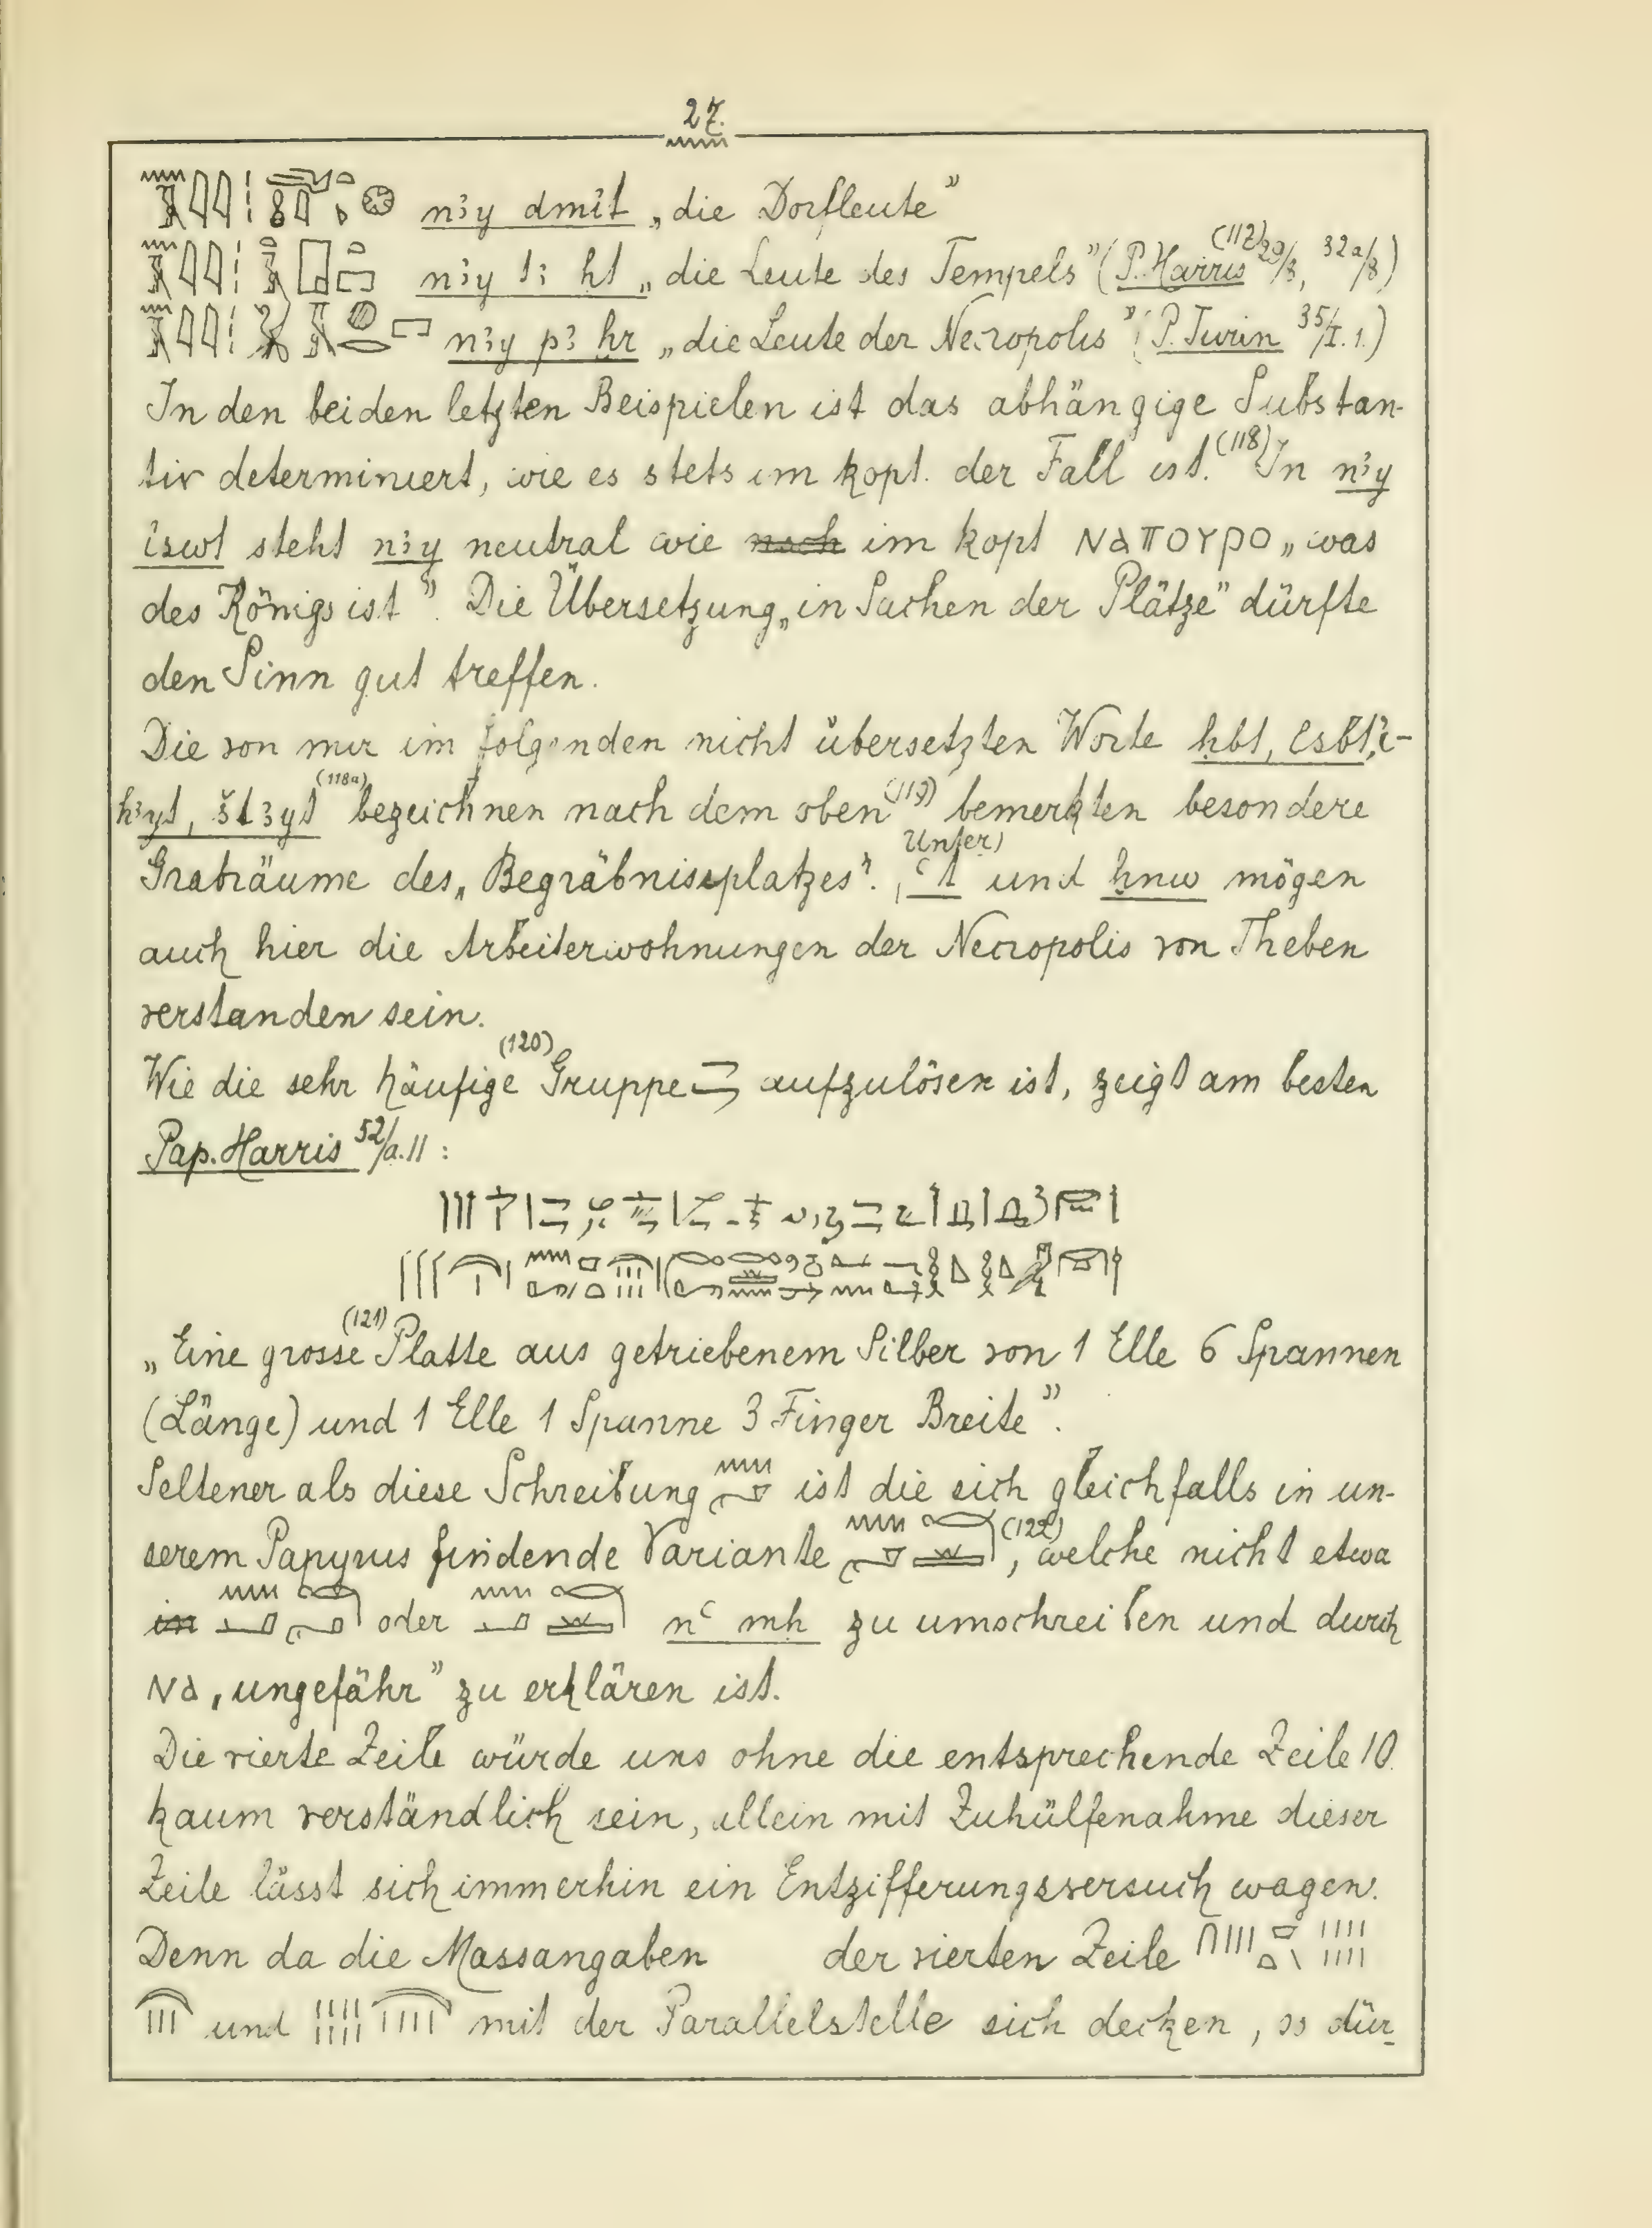 27.
n3y dmit „die Dorfleute”
n3y t3 ht „die Leute des Tempels” (P. Harris (117) 29/8, 32a/8)
n3y p3 hr „die Leute der Necropolis” (P. Turin 35/I.1.)
In den beiden letzten Beispielen ist das abhängige Substan-
tiv determiniert, wie es stets im kopt. der Fall ist. (118) In n3y
iswt steht n3y neutral wie im kopt ⲚⲀⲠⲞⲨⲢⲞ „was
des Königs ist”. Die Übersetzung „in Sachen der Plätze” dürfte
den Sinn gut treffen.
Die von mir im folgenden nicht übersetzten Worte hbt,
h3yt, št3yt (118a) bezeichnen nach dem oben (119) bemerkten besondere
Grabräume des „Begräbnissplatzes”. (Unter) ꜥt und hnw mögen
auch hier die Arbeiterwohnungen der Necropolis von Theben
verstanden sein.
Wie die sehr häufige (120) Gruppe aufzulösen ist, zeigt am besten
Pap. Harris 52/a.11 :
„Eine grosse (121) Platte aus getriebenem Silber von 1 Elle 6 Spannen
(Länge) und 1 Elle 1 Spanne 3 Finger Breite”.
Seltener als diese Schreibung ist die sich gleichfalls in un-
serem Papyrus findende Variante (122), welche nicht etwa
oder nꜥ mh zu umschreiben und durch
ⲚⲀ „ungefähr” zu erklären ist.
Die vierte Zeile würde uns ohne die entsprechende Zeile 10.
kaum verständlich sein, allein mit Zuhülfenahme dieser
Zeile lässt sich immerhin ein Entzifferungsversuch wagen.
Denn da die Massangaben der vierten Zeile
und mit der Parallelstelle sich decken, so dür-